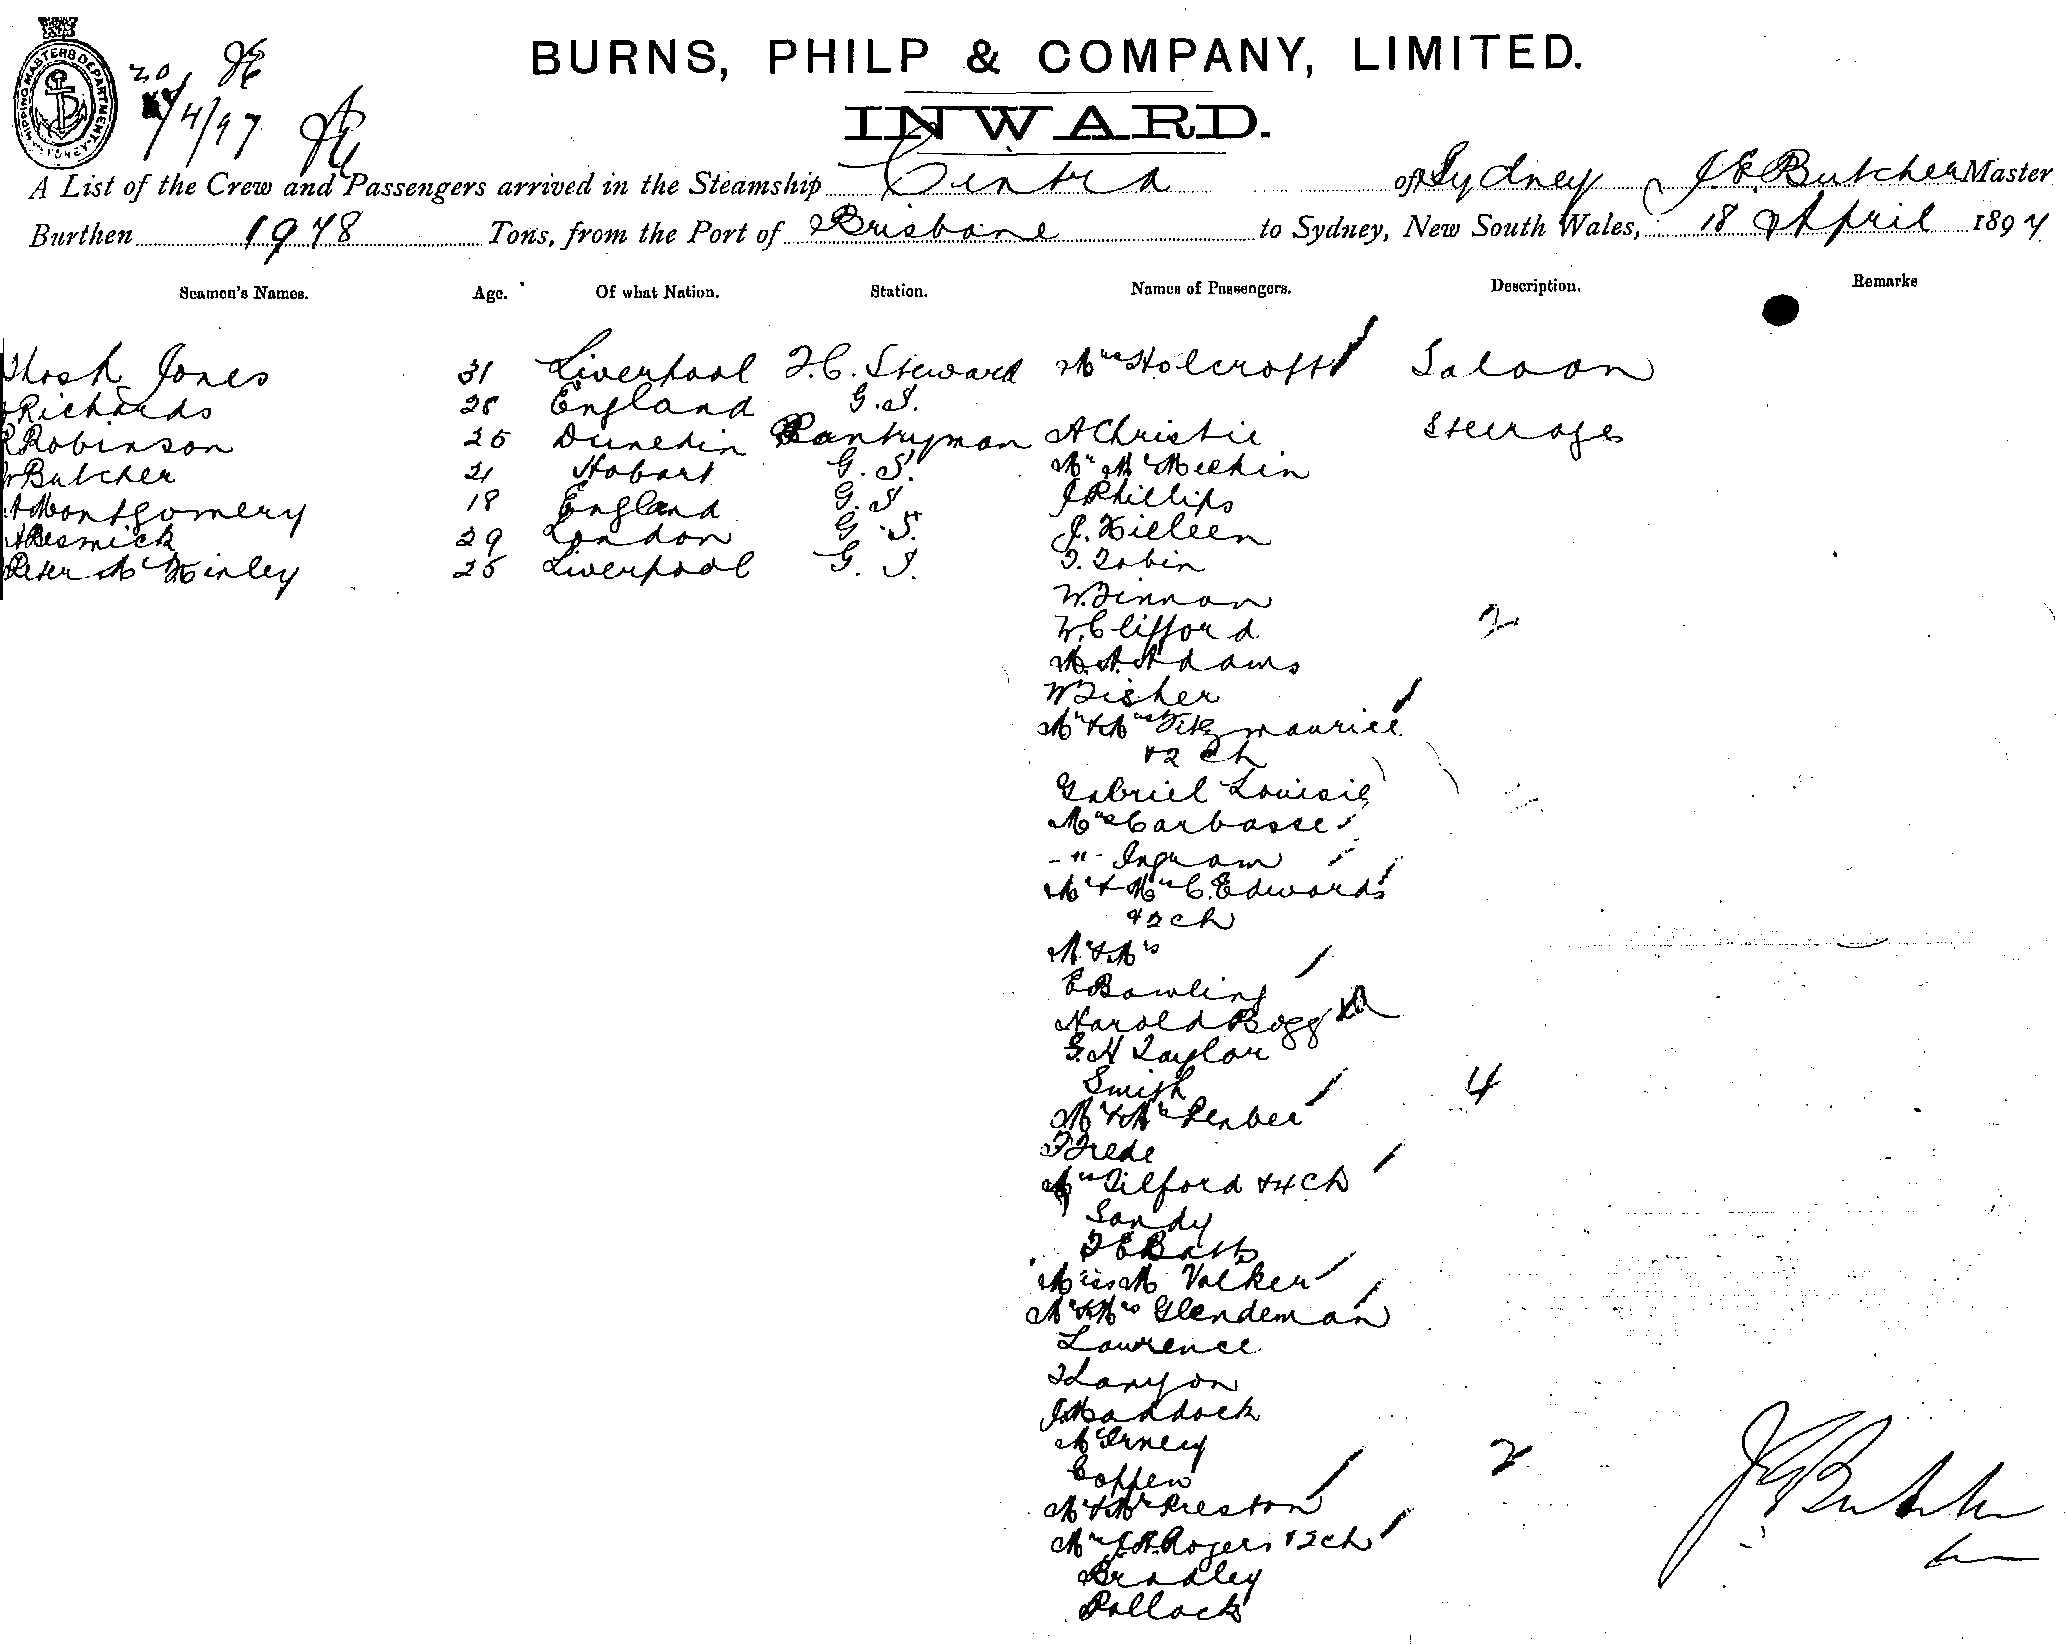 SHIPPING MASTERS DEPARTMENT
20/4/97
BURNS, PHILP & COMPANY, LIMITED.
INWARD.
A List of the Crew and Passengers arrived in the Steamship Cintra of Sydney J. E. Butcher Master
Burthen 1978 Tons, from the Port of Brisbane to Sydney, New South Wales, 18 April 1897
Seamen's Names. Age. Of what Nation. Station. Names of Passengers. Description. Remarks
Jones 31 Liverpool F.C. Steward Mrs Holcroft Saloon
Richards 28 England G.S.
Robinson 25 Dunedin Pantryman A Christie Steerage
Butcher 21 Hobart G.S. Mr McMeekin
Montgomery 18 England G.S. J Phillips
Resnick 29 London G.S. J. Killeen
Peter McKinley 25 Liverpool G.S. T. Tobin
W. Finnan
W. Clifford 2
A. Adams
W Fisher
Mr & Mrs Fitzmaurice
& 2 Ch
Gabriel Louisie
Mrs Carbasse
-"- Ingram
Mr & Mrs C. Edwards
& 2 ch
Mr & Mrs
E Bowling
Harold Bogg
G. H Taylor
Smith 4
Mr & Mrs Penber
F Frede
Mrs Tilford & 4 Ch
Sandy
F E Batts
Miss M Volker
Mr & Mrs Glendeman
Lawrence
T Lanyon
J Maddock
McErney
Coffen 2
Mr & Mrs Preston
Mrs J. A. Rogers & 2 ch
Bradley
Pollock
J E Butcher